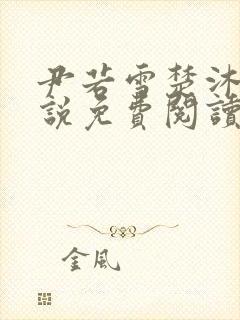 尹若雪楚沐
說免費閱讀
金風